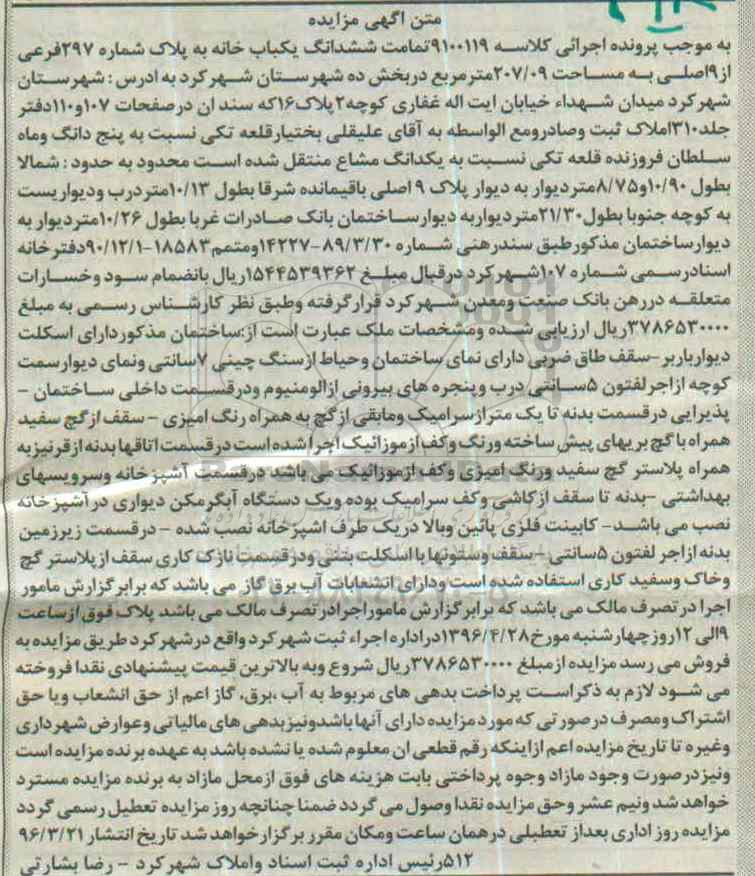 متن اگهی مزایده
به موجب پرونده اجرائی کلاسه ۹۱۰۰۱۱۹تمامت ششدانگ یکباب خانه به پلاک شماره ۲۹۷فرعی
از۹اصلی به مساحت ۲۰۷/۰۹مترمربع دربخش ده شهرستان شهرکرد به ادرس : شهرستان
شهرکرد میدان شهداء خیابان ایت اله غفاری کوچه۲پلاک۱۶که سند ان درصفحات ۱۰۷و۱۱۰دفتر
جلد۳۱۰املاک ثبت وصادرومع الواسطه به آقای علیقلی بختیارقلعه تکی نسبت به پنج دانگ وماه
سلطان فروزنده قلعه تکی نسبت به یکدانگ مشاع منتقل شده است محدود به حدود : شمالا
بطول ۱۰/۹۰و۸/۷۵متردیوار به دیوار پلاک ۹ اصلی باقیمانده شرقا بطول ۱۰/۱۳متردرب ودیواریست
به کوچه جنوبا بطول۲۱/۳۰متردیواربه دیوارساختمان بانک صادرات غربا بطول ۱۰/۲۶متردیوار به
دیوارساختمان مذکورطبق سندرهنی شماره ۸۹/۳/۳۰-۱۴۲۲۷ومتمم۱۸۵۸۳-۹۰/۱۲/۱دفترخانه
اسنادرسمی شماره ۱۰۷شهرکرد درقبال مبلغ ۱۵۴۴۵۳۹۳۶۲ریال بانضمام سود وخسارات
متعلقه دررهن بانک صنعت ومعدن شهرکرد قرارگرفته وطبق نظر کارشناس رسمی به مبلغ
۳۷۸۶۵۳۰۰۰۰ریال ارزیابی شده ومشخصات ملک عبارت است از:ساختمان مذکوردارای اسکلت
دیوارباربر-سقف طاق ضربی دارای نمای ساختمان وحیاط ازسنگ چینی ۷سانتی ونمای دیوارسمت
کوچه ازاجرلفتون ۵سانتی درب وپنجره های بیرونی ازالومنیوم ودرقسمت داخلی ساختمان -
پذیرایی درقسمت بدنه تا یک متر ازسرامیک ومابقی ازگچ به همراه رنگ امیزی - سقف ازگچ سفید
همراه باگچ بریهای پیش ساخته ورنگ وکف ازموزائیک اجرا شده است درقسمت اتاقها بدنه ازقرنیزبه
همراه پلاستر گچ سفید ورنگ امیزی وکف ازموزائیک می باشد درقسمت آشپزخانه وسرویسهای
بهداشتی -بدنه تا سقف ازکاشی وکف سرامیک بوده ویک دستگاه آبگرمکن دیواری درآشپزخانه
نصب می باشد- کابینت فلزی پائین وبالا دریک طرف اشپزخانه نصب شده - درقسمت زیرزمین
بدنه ازاجر لفتون ۵سانتی - سقف وستونها با اسکلت بتنی ودرقسمت نازک کاری سقف ازپلاستر گچ
وخاک وسفید کاری استفاده شده است ودارای انشعابات آب برق گاز می باشد که برابرگزارش مامور
اجرا درتصرف مالک می باشد که برابرگزارش ماموراجرادرتصرف مالک می باشد پلاک فوق ازساعت
۹الی ۱۲روزچهارشنبه مورخ۱۳۹۶/۴/۲۸دراداره اجراء ثبت شهرکرد واقع درشهرکرد طریق مزایده به
فروش می رسد مزایده ازمبلغ ۳۷۸۶۵۳۰۰۰۰ریال شروع وبه بالاترین قیمت پیشنهادی نقدا فروخته
می شود لازم به ذکراست پرداخت بدهی های مربوط به آب ،برق، گاز اعم از حق انشعاب ویا حق
اشتراک ومصرف درصورتی که مورد مزایده دارای آنها باشدونیزبدهی های مالیاتی وعوارض شهرداری
وغیره تا تاریخ مزایده اعم ازاینکه رقم قطعی ان معلوم شده یا نشده باشد به عهده برنده مزایده است
ونیزدرصورت وجود مازاد وجوه پرداختی بابت هزینه های فوق ازمحل مازاد به برنده مزایده مسترد
خواهد شدونیم عشر وحق مزایده نقدا وصول می گردد ضمنا چنانچه روز مزایده تعطیل رسمی گردد
مزایده روز اداری بعداز تعطیلی درهمان ساعت ومکان مقرر برگزارخواهد شد تاریخ انتشار ۹۶/۳/۲۱
۵۱۲رئیس اداره ثبت اسناد واملاک شهرکرد - رضا بشارتی